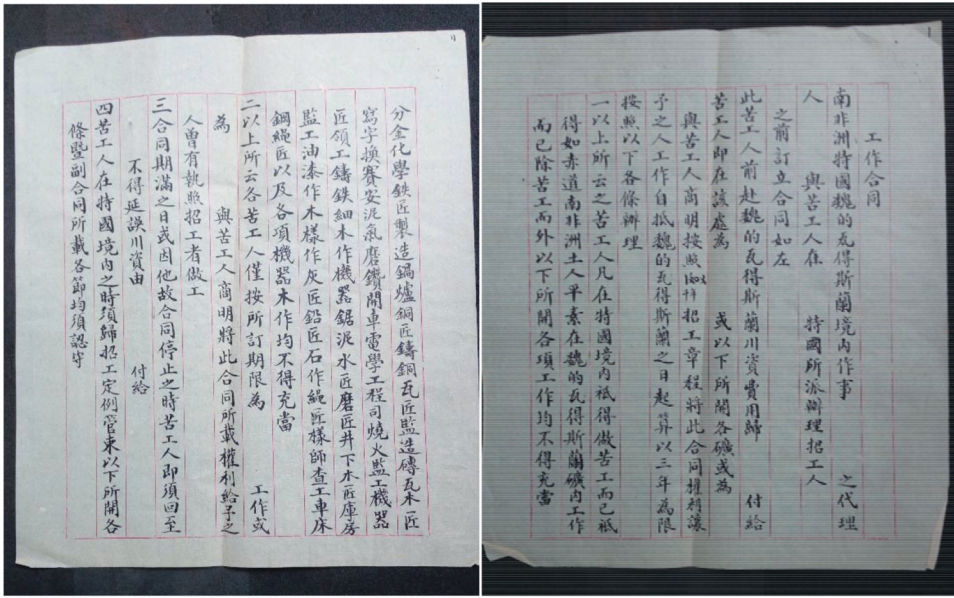 工作合同
南非洲持國魏的瓦得斯蘭境内作事 之代理
人 與苦工人在 持國所派辦理招工人
之前訂立合同如左
此苦工人前赴魏的瓦得斯蘭川資費用歸 付給
苦工人即在該處為 或以下所開各礦或為
與苦工人商明按照 招工章程將此合同權利讓
予之人工作自抵魏的瓦得斯蘭之日起算以三年為限
按照以下各條辦理
一以上所云之苦工人凡在持國境内祇得做苦工而已祇
得如赤道南非洲土人平素在魏的瓦得斯蘭礦内工作
而已除苦工而外以下所開各項工作均不得充當
分金化學鉄匠製造鍋爐銅匠鑄銅瓦匠監造磚瓦木匠
寫字換賽安泥氣磨鑽開車電學工程司燒火監工機器
匠領工鑄鉄細木作機器鋸泥水匠磨匠井下木匠庫房
監工油漆作木樣作灰匠鉛匠石作繩匠樣師查工車床
鋼繩匠以及各項機器木作均不得充當
二以上所云各苦工人僅按所訂期限為 工作或
為 與苦工人商明將此合同所載權利給予之
人曾有執照招工者做工
三合同期滿之日或因他故合同停止之時苦工人即須回至
不得延誤川資由 付給
四苦工人在持國境内之時須歸招工定例管束以下所開各
條暨副合同所載各節均須認守